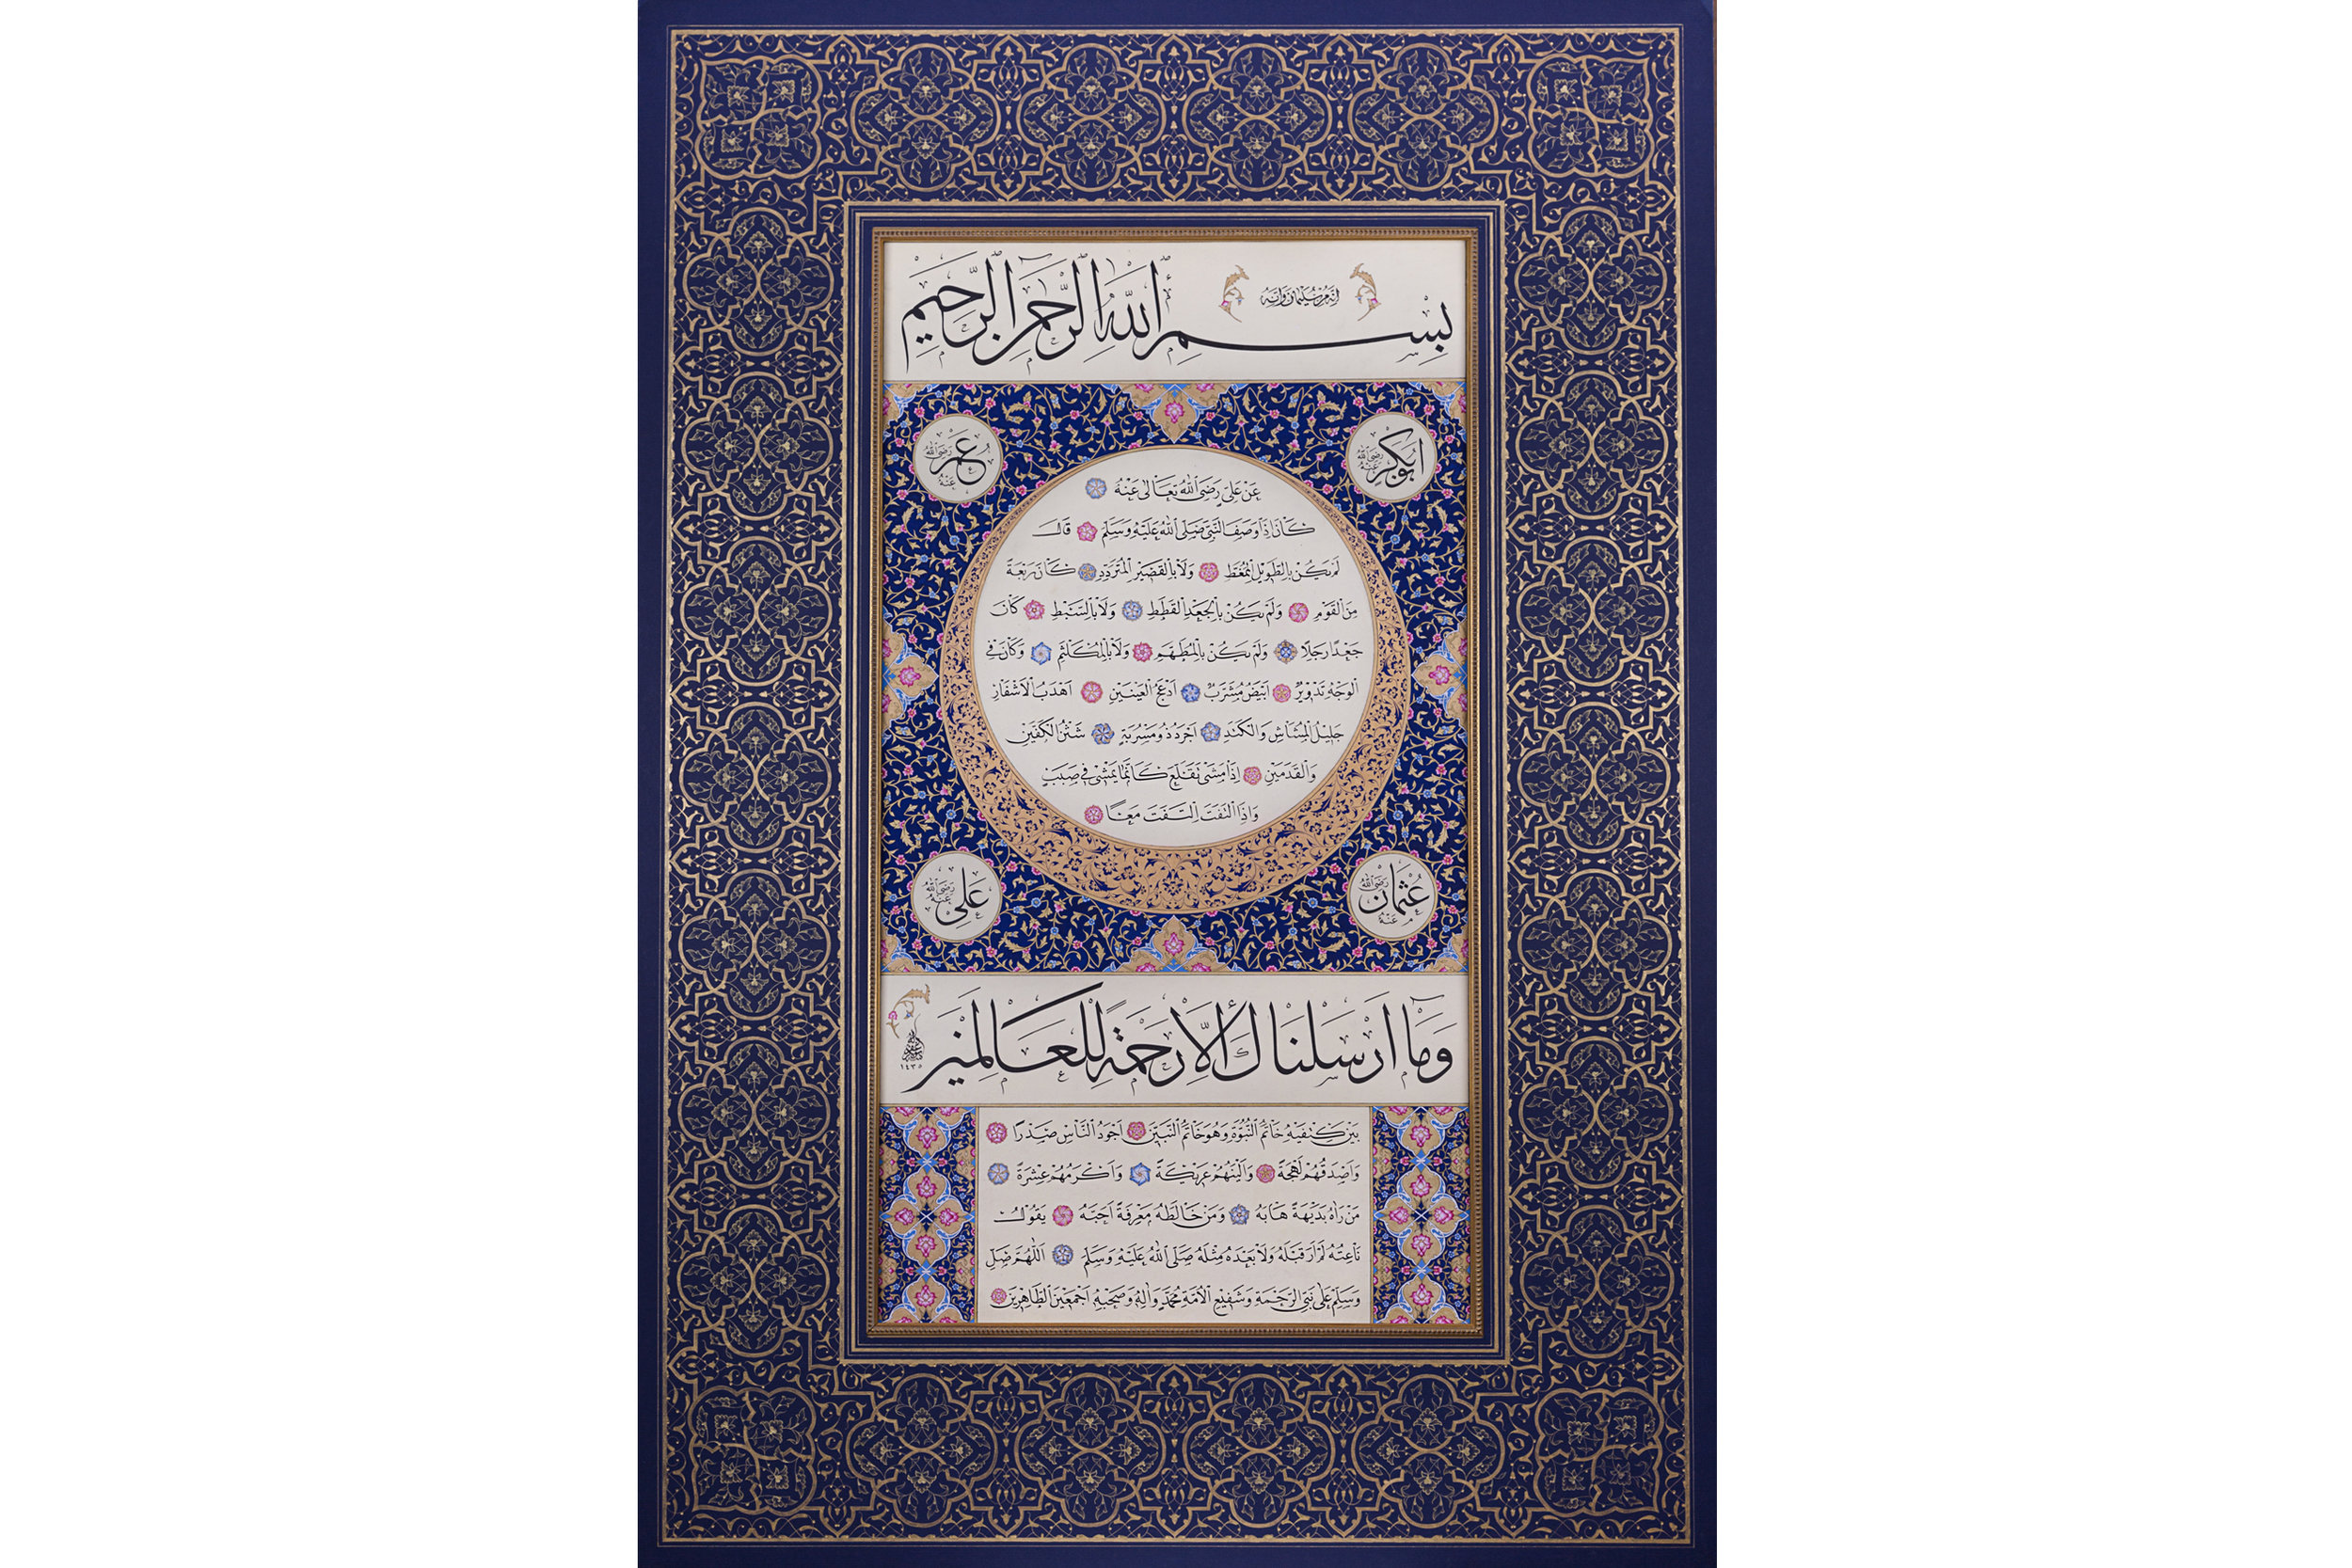 انه من سليمان وانه
بسم الله الرحمن الرحيم
ابوبكر رضي الله عنه
عمر رضي الله عنه
عن علي رضي الله تعالى عنه
كان اذا وصف النبي صلى الله عليه وسلم قال
لم يكن بالطويل الممغط ولا بالقصير المتردد كان ربعة
من القوم ولم يكن بالجعد القطط ولا بالسبط كان
جعدا رجلا ولم يكن بالمطهم ولا بالمكلثم وكان في
الوجه تدوير ابيض مشرب ادعج العينين اهدب الاشفار
جليل المشاش والكتد اجرد ذو مسربة شثن الكفين
والقدمين اذا مشى تقلع كانما يمشي في صبب
واذا التفت التفت معا
عثمان رضي الله عنه
علي رضي الله عنه
وما ارسلناك الا رحمة للعالمين
١٤٣٥
بين كتفيه خاتم النبوة وهو خاتم النبيين اجود الناس صدرا
واصدقهم لهجة والينهم عريكة واكرمهم عشرة
من راه بديهة هابه ومن خالطه معرفة احبه يقول
ناعته لم ار قبله ولا بعده مثله صلى الله عليه وسلم اللهم صل
وسلم على نبي الرحمة وشفيع الامة محمد واله وصحبه اجمعين الطاهرين